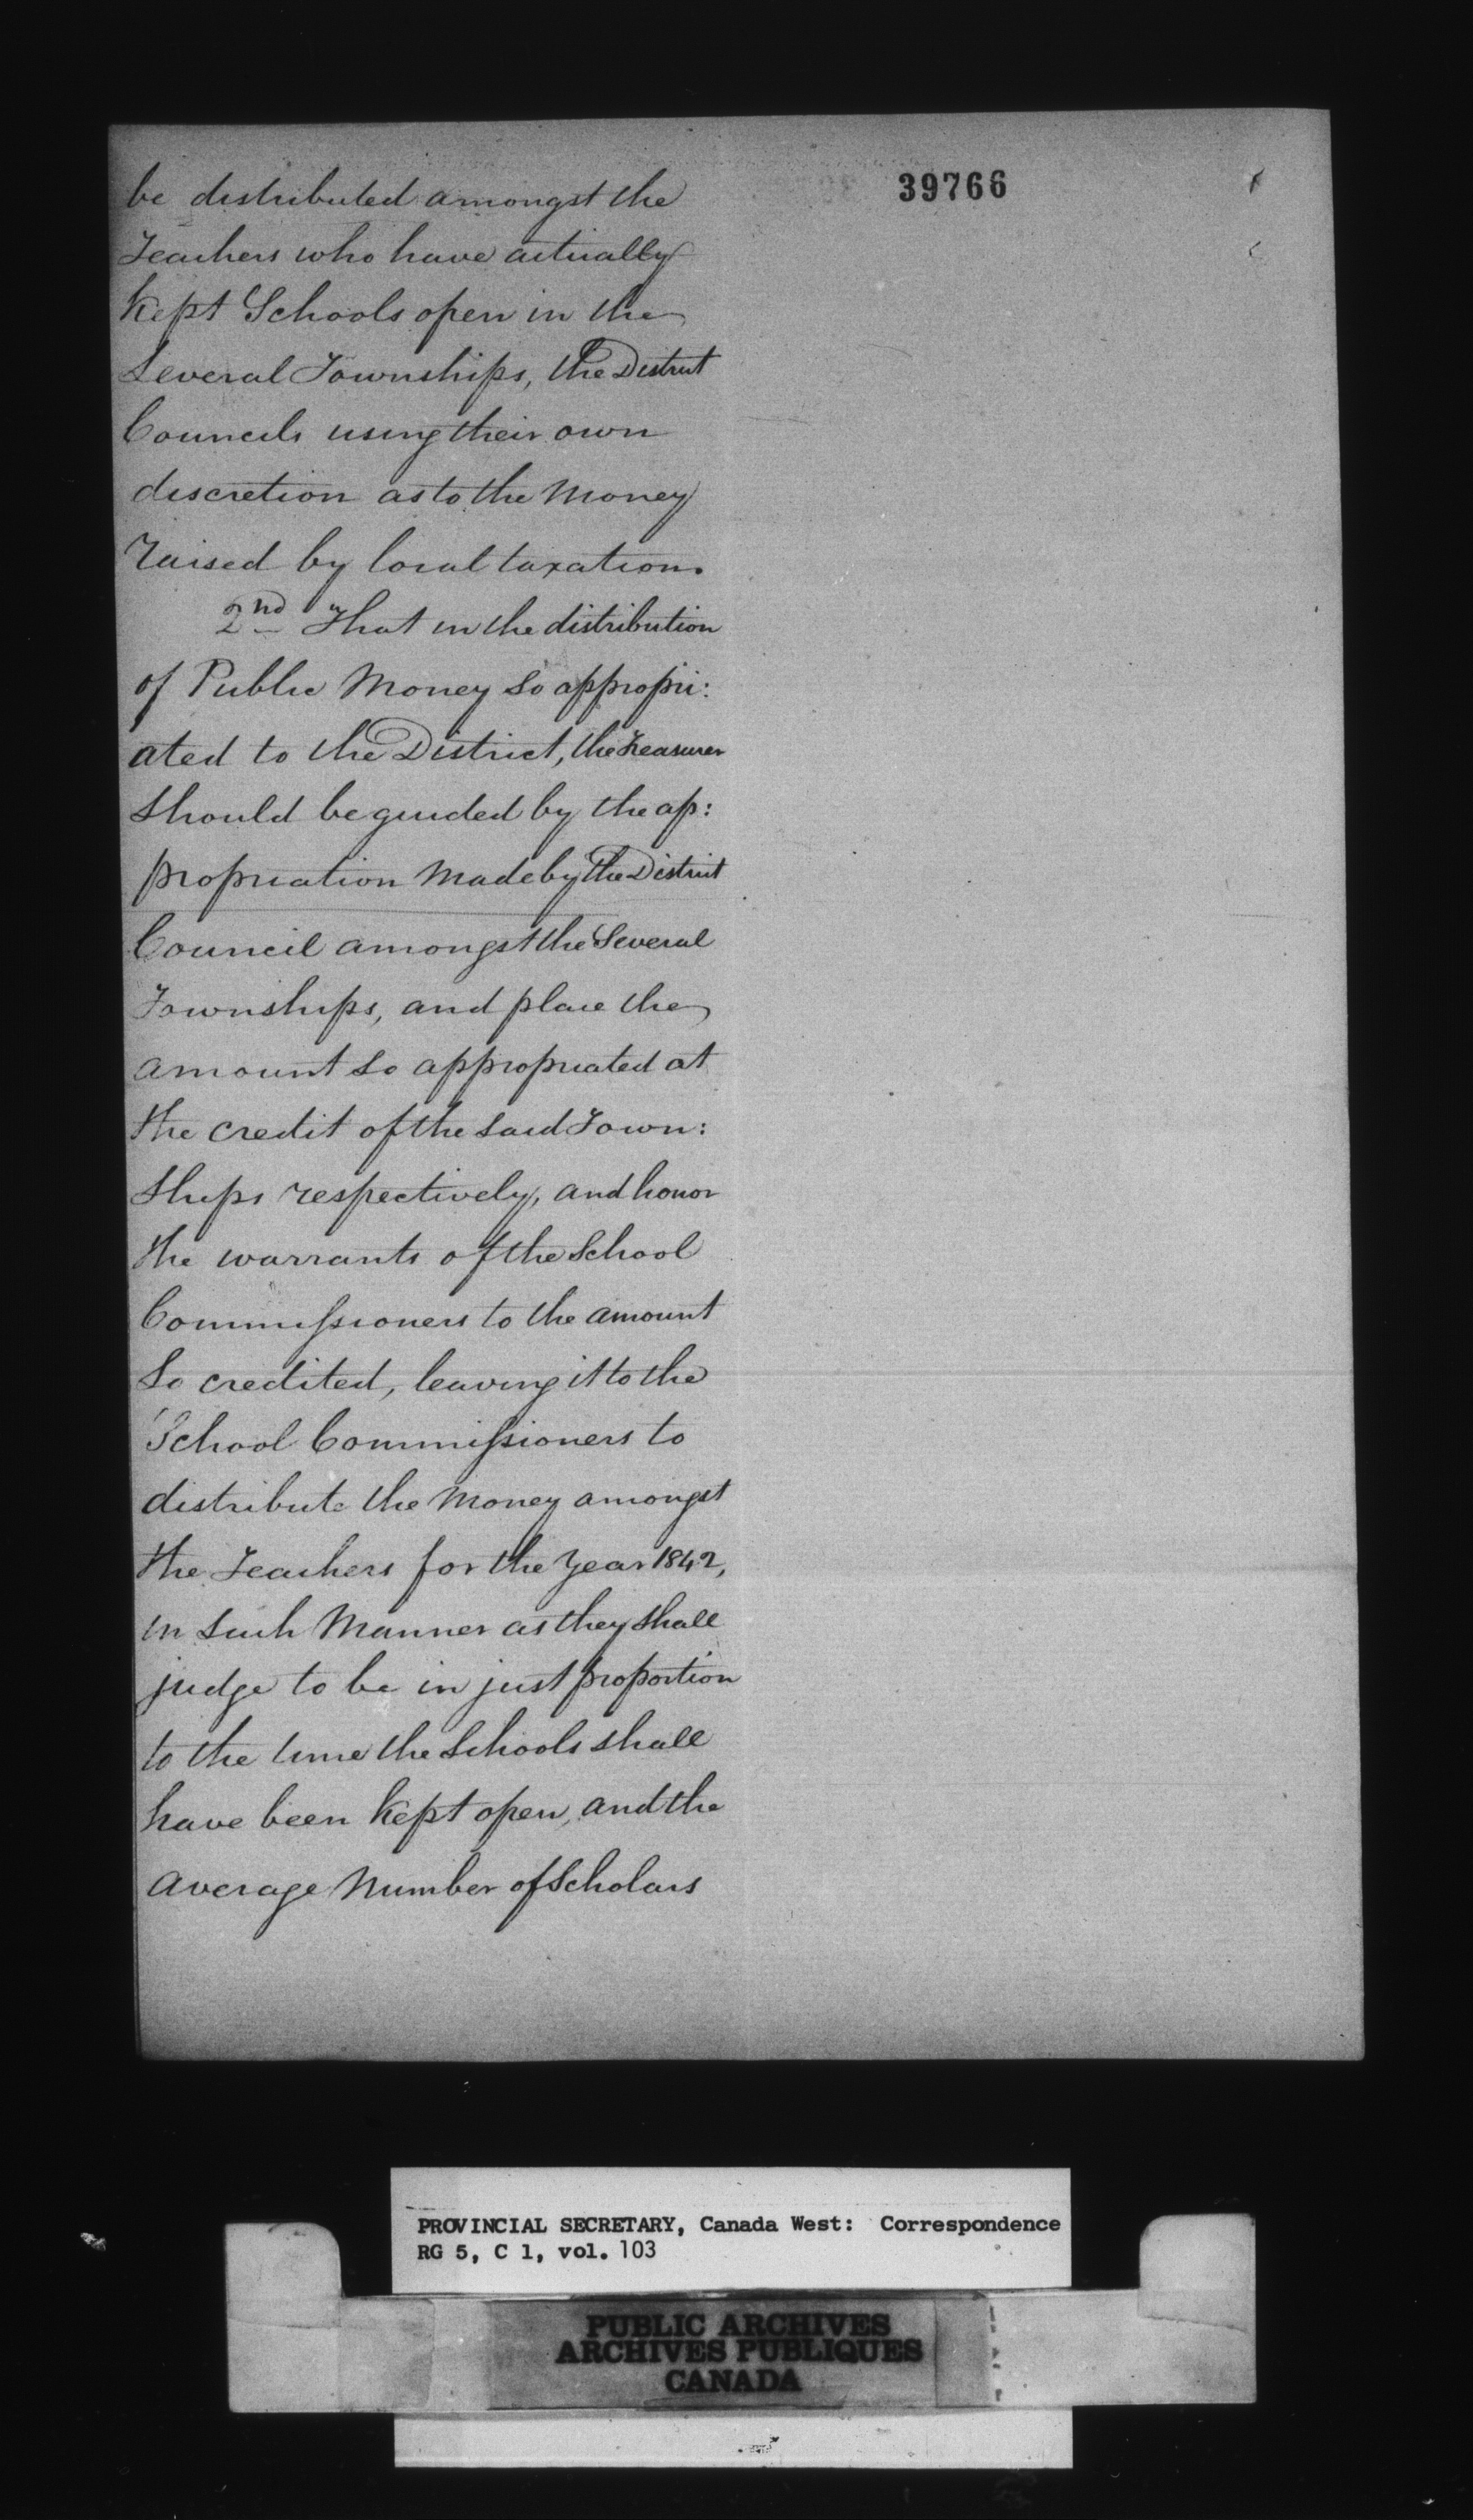 39766
be distributed amongst the
Teachers who have actually
kept Schools open in the
Several Townships, the District
Councils using their own
discretion as to the Money
raised by local taxation.
2nd That in the distribution
of Public Money so appropri:
ated to the District, the Treasurer
should be guided by the ap:
propriation Made by the District
Council amongst the Several
Townships, and place the
amount so appropriated at
the credit of the said Town:
ships respectively, and honor
the warrants of the School
Commissioners to the amount
So credited, leaving it to the
School Commissioners to
distribute the Money amongst
the Teachers for the Year 1842,
in such Manner as they shall
judge to be in just proportion
to the time the Schools shall
have been kept open, and the
average Number of Scholars
PROVINCIAL SECRETARY, Canada West: Correspondence
RG 5, C 1, vol. 103
PUBLIC ARCHIVES
ARCHIVES PUBLIQUES
CANADA